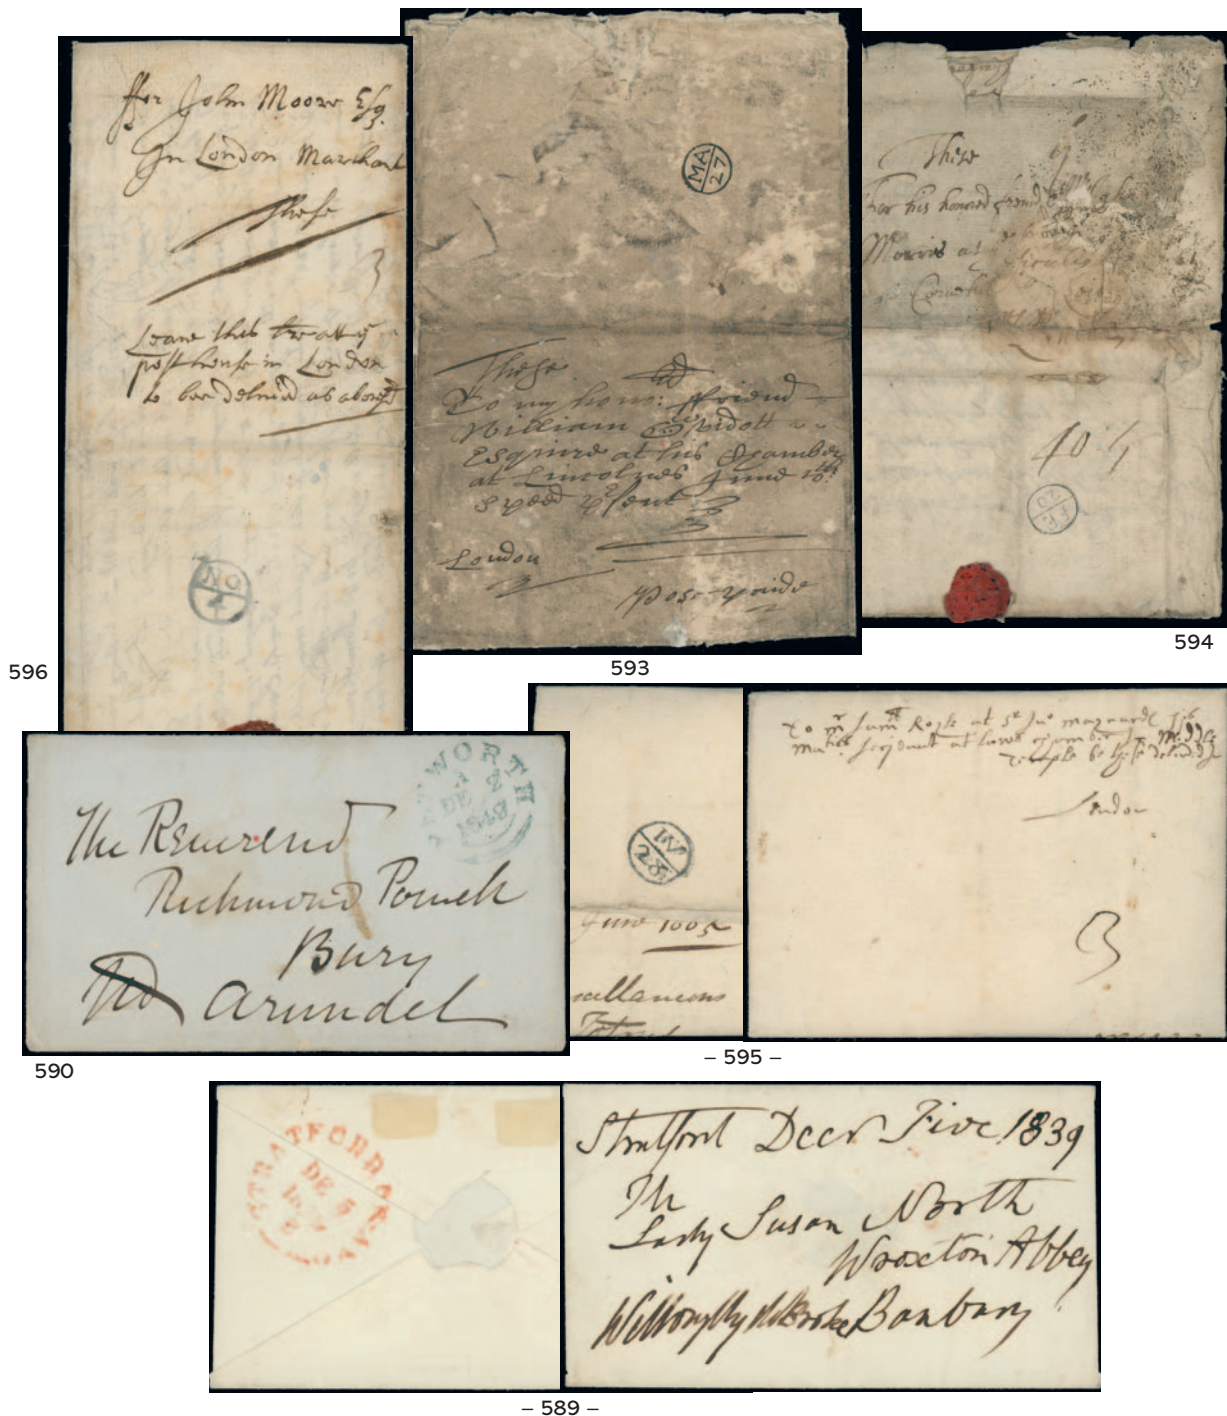 ffor John Moore Esq.
In London Marchant
These
3
Leave this at ye
post house in London
to bee delived as aboves
NO
596
MA
27
These
To my hono: ffriend
William
Esquire at his Chamber
at Lincolnes Inne
speed psent
London
Post-paide
593
These
For his honored friend
Morris at
FR
20
594
PETWORTH
A
DE 2
1848
The Reverend
Richmond Powell
Bury
Arundel
590
IV
28
June 1665
scellaneous
To Mr Saml Royle at Sr Jno Maynards his
Maties Serjeant at Lawe Chamber in Middle
Temple be these delivered
London
3
– 595 –
STRATFORD ON AVON
DE 5
Stratford Decr Five 1839
The
Lady Susan North
Wroxton Abbey
Willoughby de Broke Banbury
– 589 –